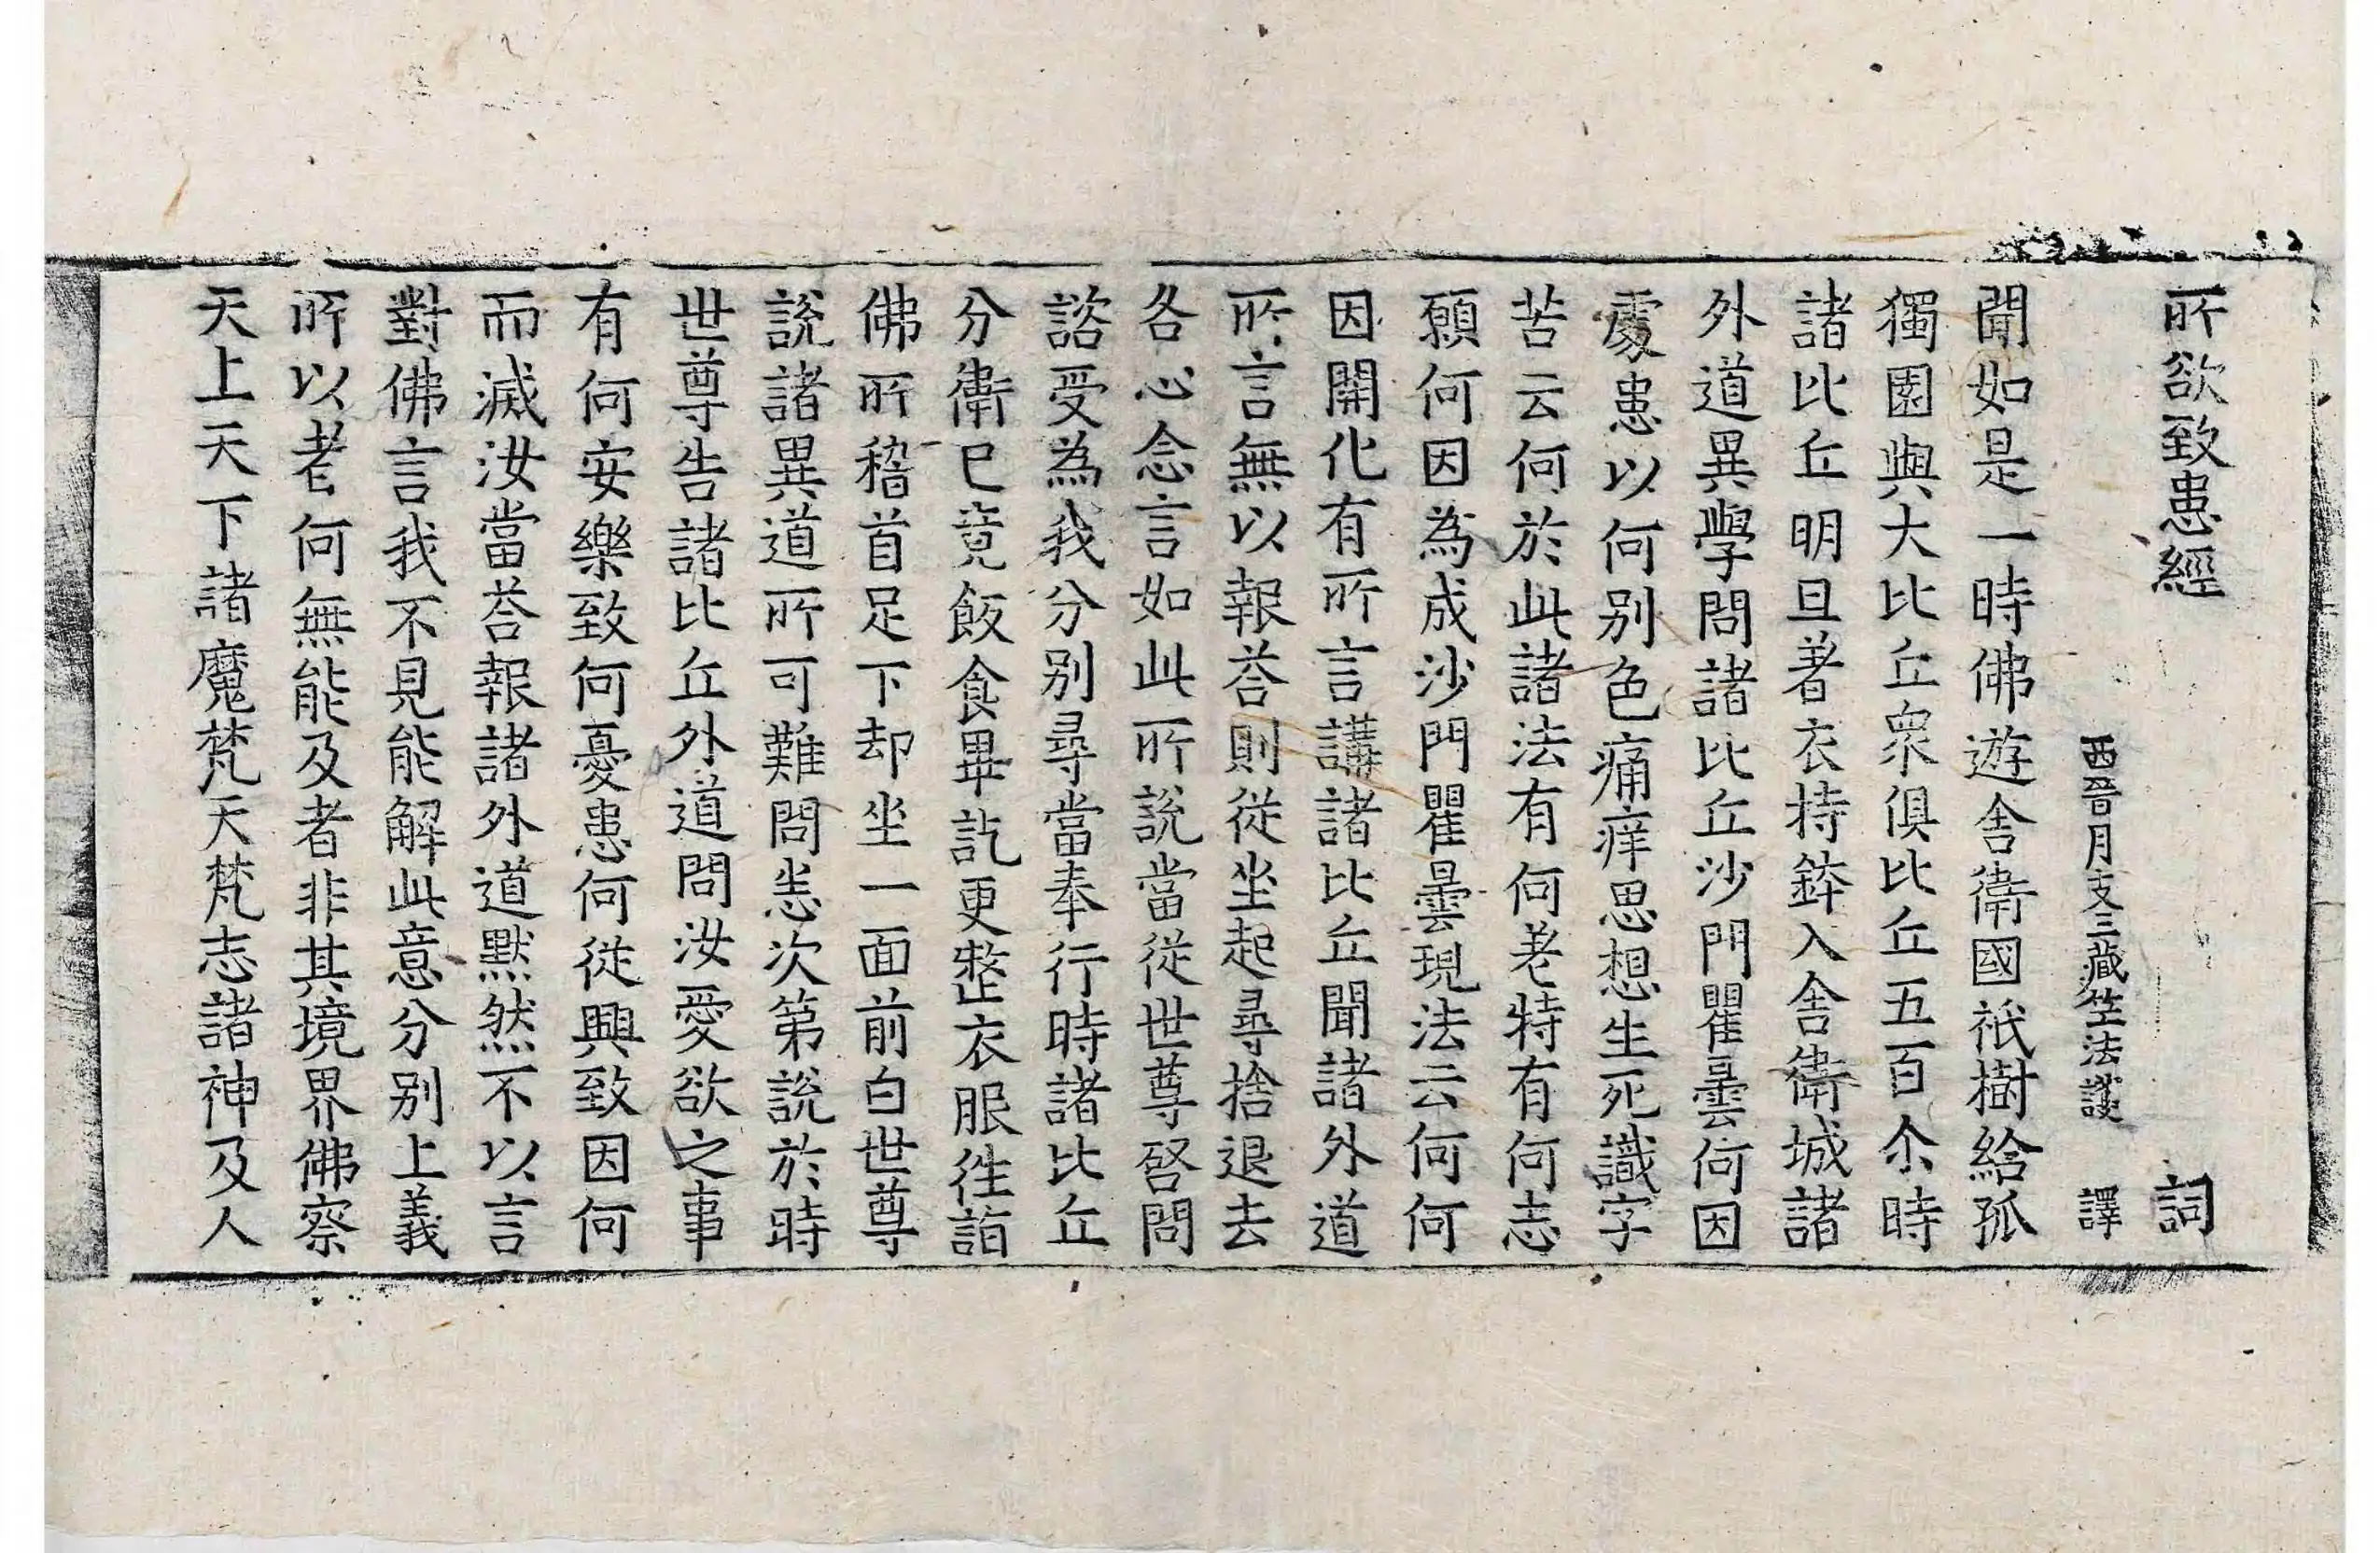 所欲致患經 詞
西晉月支三藏竺法護 譯
聞如是一時佛遊舍衛國祇樹給孤
獨園與大比丘衆俱比丘五百尒時
諸比丘明旦著衣持鉢入舍衛城諸
外道異學問諸比丘沙門瞿曇何因
處患以何别色痛痒思想生死識字
苦云何於此諸法有何老特有何志
願何因為成沙門瞿曇現法云何何
因開化有所言講諸比丘聞諸外道
所言無以報荅則從坐起尋捨退去
各心念言如此所說當從世尊啓問
諮受為我分别尋當奉行時諸比丘
分衛已竟飯食畢訖更整衣服徃詣
佛所稽首足下却坐一面前白世尊
說諸異道所可難問恙次第說於時
世尊告諸比丘外道問汝愛欲之事
有何安樂致何憂患何從興致因何
而滅汝當荅報諸外道默然不以言
對佛言我不見能解此意分别上義
所以者何無能及者非其境界佛察
天上天下諸魔梵天梵志諸神及人